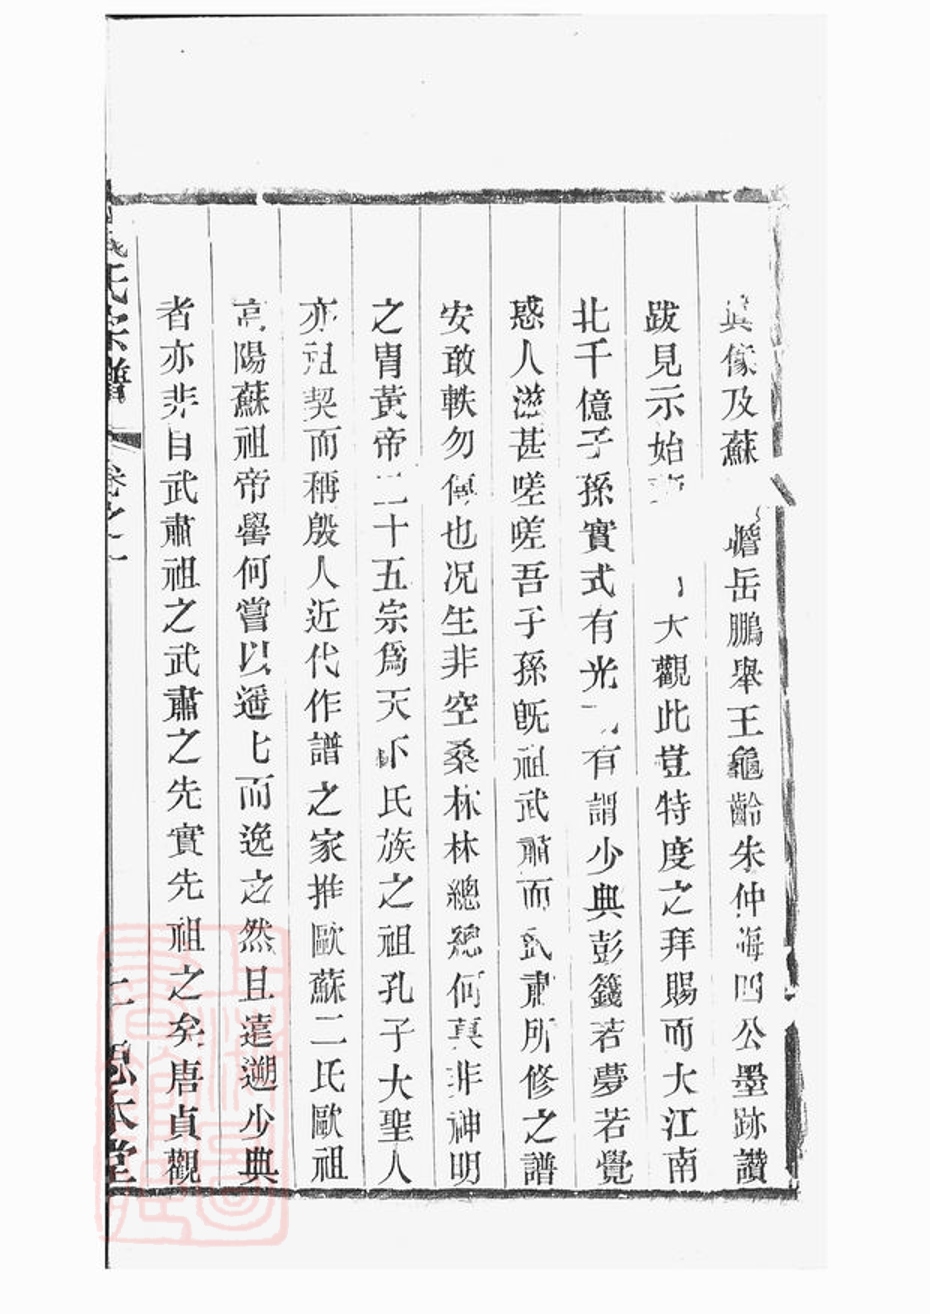 眞像及蘇 瞻岳鵬舉王龜齡朱仲晦四公墨跡讚
跋見示始 大觀此豈特度之拜賜而大江南
北千億子孫實式有光 有謂少典彭籛若夢若覺
惑人滋甚嗟嗟吾子孫旣祖武肅而武肅所修之譜
安敢軼勿傳也况生非空桑林林總總何莫非神明
之冑黃帝二十五宗爲天下氏族之祖孔子大聖人
亦祖契而稱殷人近代作譜之家推歐蘇二氏歐祖
高陽蘇祖帝嚳何嘗以遥七而逸之然且遠遡少典
者亦非自武肅祖之武肅之先實先祖之矣唐貞觀
氏宗譜 卷之一 二 本堂